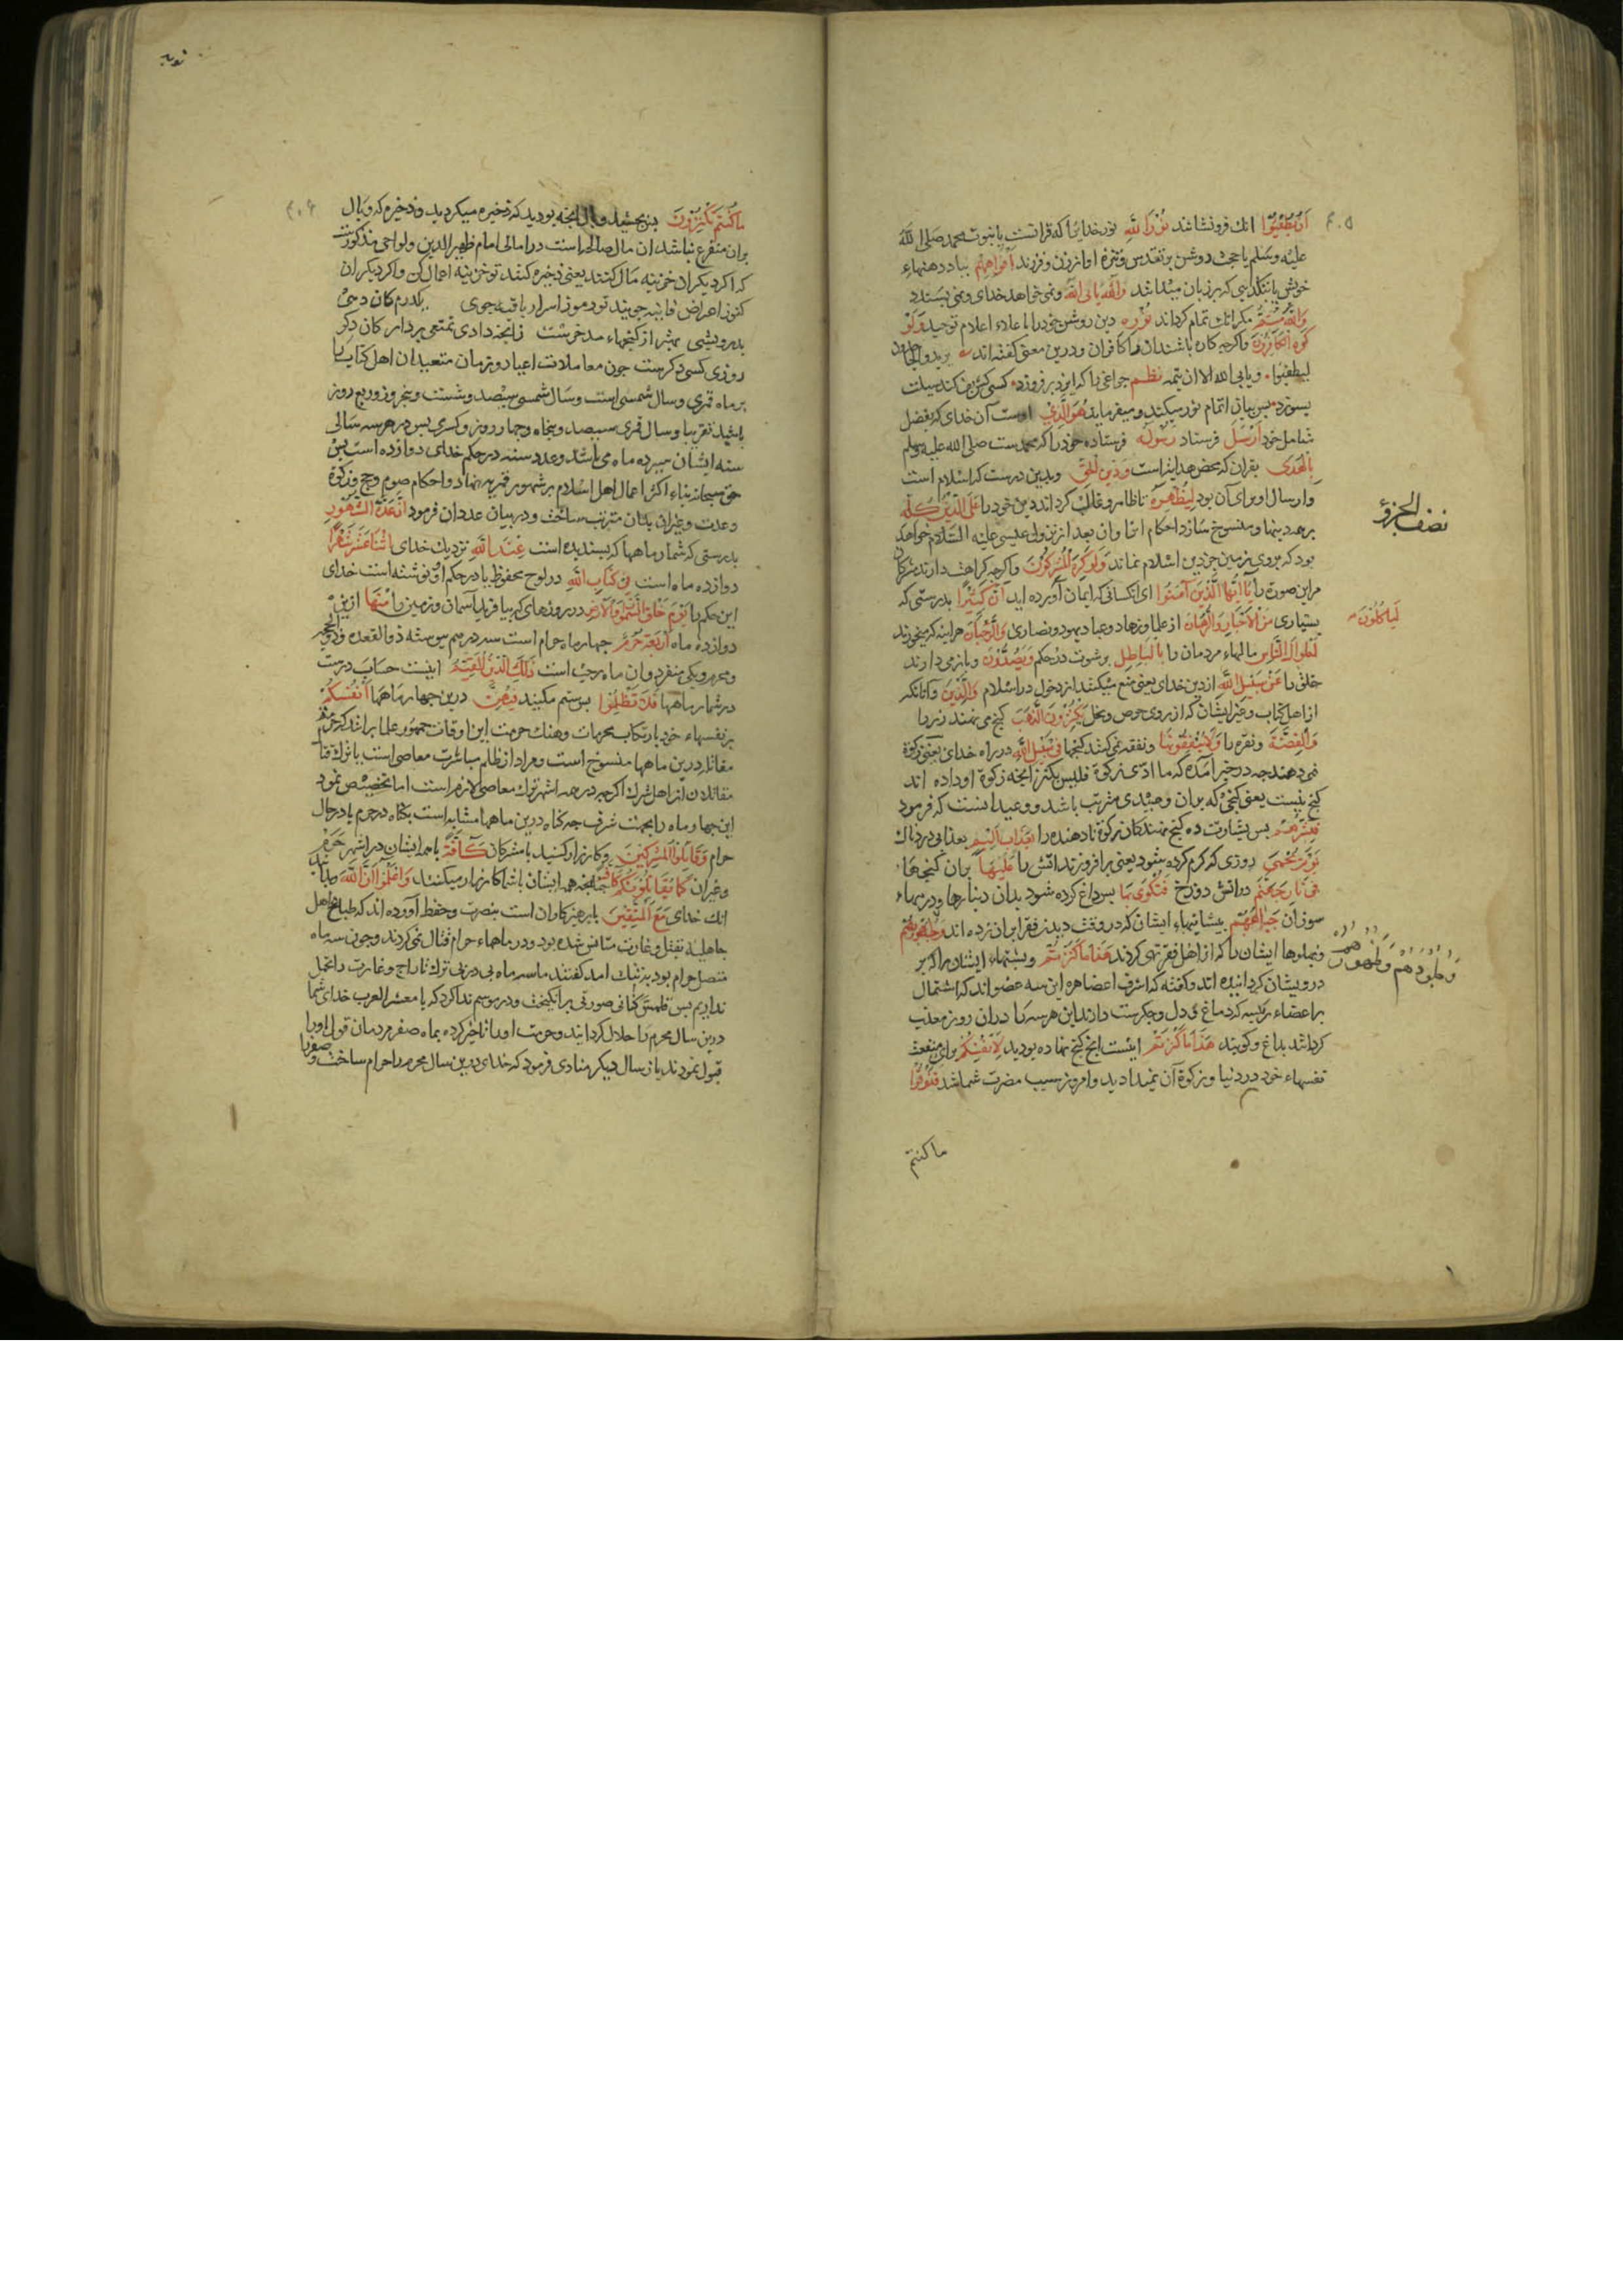 اَنْ يُطْفِئُوا انك فرونشاند نُورَ اللّٰهِ نور خدایرا که قرانست یا نبوت محمد صلی الله
علیه وسلم یا حجت روشن بر تقدس وتنزه او از زن وفرزند اَفْوَاهِهِمْ بباد دهنهاء
خویش یا بتکذیبی که بر زبان میداشد وَاللّٰهُ یَابَی اللّٰهُ ونمی خواهد خدای ونمی پسندد
مکر انك تمام کرداند نُورَهُ دین روشن خود را با علاء اعلام توحید وَلَوْ
كَرِهَ الْكَافِرُونَ واکرچه کاره باشندان را کافران ودرین معنی کفته اند یریدو الجاحدون
لیطفئوا ویابی الله الا ان یتمه نظم چراغی را که ایزد بر فروزد کسی کش پف کند سبلت
بسوزد پس بیان اتمام نور میکند ومیفرماید هُوَ الَّذِي اوست آن خدای که بفضل
شامل خود اَرْسَلَ فرستاد رَسُولَهُ فرستاده خود را که محمدست صلی الله علیه وسلم
بِالْهُدَى بقران که محض هدایتراست وَدِينِ الْحَقِّ وبدین درست که اسلام است
وارسال او برای آن بود لِيُظْهِرَهُ تا ظاهر وغالب کرداند دین خود را عَلَى الدِّينِ كُلِّهِ
نصف الحزو
بر همه دینها ومنسوخ سازد احکام انرا وان بعد از نزول عیسی علیه السلام خواهد
بود که بروی زمین جز دین اسلام نماند وَلَوْ كَرِهَ الْمُشْرِكُونَ واکرچه کراهت دارند مشرکان
مراین صورة را يَا اَيُّهَا الَّذِينَ آمَنُوا ای انکسانی که ایمان آورده اید اِنَّ كَثِيرًا بدرستی که
بسیاری مِنَ الْاَحْبَارِ وَالرُّهْبَانِ از علما وزهاد وعباد یهود ونصاری هراینه که میخورند
لَيَاكُلُونَ
اَمْوَالَ النَّاسِ مالهاء مردمان را بِالْبَاطِلِ برشوت در حکم وَيَصُدُّونَ وبازمی دارند
خلق را عَنْ سَبِيلِ اللّٰهِ از دین خدای یعنی منع میکنند از دخول در اسلام وَالَّذِينَ وآنانکه
از اهل کتاب وغیر ایشان که از روی حرص وبخل يَكْنِزُونَ الذَّهَبَ کنج می نهند زر را
وَالْفِضَّةَ ونقره را وَلَا يُنْفِقُونَهَا ونفقه نمی کنند کنجها فِي سَبِيلِ اللّٰهِ در راه خدای یعنی زکوة
نمی دهند چه در خبر امده که ما ادّی زکوة فلیس بکنز انچه زکوة او داده اند
کنج نیست یعنی کنجی که بران وعیدی مترتب باشد ووعید اینست که فرمود
فَبَشِّرْهُمْ پس بشارت ده کنج نهندکان زکوة نادهنده را بِعَذَابٍ اَلِيمٍ بعذابی دردناك
يَوْمَ يُحْمَى روزی که کرم کرده شود یعنی برافروزند اتش را عَلَيْهَا بران کنجها
فِي نَارِ جَهَنَّمَ در اتش دوزخ فَتُكْوَى بِهَا پس داغ کرده شود بدان دینارها ودرمهاء
سوزان جِبَاهُهُمْ پیشانیهاء ایشان که در وقت دیدن فقرا بران زده اند وَجُنُوبُهُمْ
وپهلوها ایشان را که از اهل فقر تهی کردند هَذَا مَا كَنَزْتُمْ وپشتهاء ایشانرا که بر
وَظُهُورُهُمْ
درویشان کردانیده اند وکفته که اشرف اعضا هره این سه عضواند که اشتمال
بر اعضاء رئیسه که دماغ ودل وجکرست دارند این هر سه را دران روز معذب
کرداند بداغ وکویند هَذَا مَا كَنَزْتُمْ اینست انچ کنج نهاده بودید لِاَنْفُسِكُمْ برای منفعت
نفسهاء خود در دنیا وزکوة آن نمیدادید وامروز سبب مضرت شماشد فَذُوقُوا
ما کنتم
توبه
مَا كُنْتُمْ تَكْنِزُونَ پس بچشید وبال انچه بودید که ذخیره میکردید وذخیره که وبال
بران متفرع نباشد ان مال صالح است در امالی امام ظهیر الدین ولوالجی مذکورست
که اکر دیکران خزینه مال کنند یعنی ذخیره کنند تو خزینه اعمال کن واکر دیکران
کنوز اعراض فانیه جویند تو رموز اسرار باقیه جوی یکدرم کان دهی
بدرویشی بهتر از کنجهاء مدخرست زانچه داری تمتعی بردار کان دکر
روزی کسی دکرست چون معاملات اعیاد وزمان متعبدان اهل کتاب با
بر ماه قمری وسال شمسی است وسال شمسی سیصد وشست وپنج روز وربع روز
باشد تقریبا وسال قمری سیصد وپنجاه وچهار روز وکسری پس در هر سه سالی
سنه ایشان سیزده ماه می باشد وعدد سنه در حکم خدای دوازده است پس
حق سبحانه بناء اکثر اعمال اهل اسلام بر شهور قمریه نهاد واحکام صوم وحج وزکوة
وعدت وغیران بدان مترتب ساخت ودر بیان عدد ان فرمود اِنَّ عِدَّةَ الشُّهُورِ
بدرستی که شمار ماهها که پسندیده است عِنْدَ اللّٰهِ نزدیك خدای اثْنَا عَشَرَ شَهْرًا
دوازده ماه است فِي كِتَابِ اللّٰهِ در لوح محفوظ یا در حکم او نوشته است خدای
این حکم را يَوْمَ خَلَقَ السَّمٰوَاتِ وَالْاَرْضَ در روزهای که بیافرید آسمان وزمین را مِنْهَا ازین
دوازده ماه اَرْبَعَةٌ حُرُمٌ چهار ماه حرام است سه درهم پیوسته ذو القعده وذو الحجه
ومحرم ویکی منفرد وان ماه رجب است ذٰلِكَ الدِّينُ الْقَيِّمُ اینست حساب درست
در شمار ماهها فَلَا تَظْلِمُوا پس ستم مکنید فِيهِنَّ درین چهار ماهها اَنْفُسَكُمْ
بر نفسهاء خود بارتکاب محرمات وهتك حرمت این اوقات جمهور علما برانند که حرمة
مقاتله درین ماهها منسوخ است ومراد از ظلم مباشرت معاصی است یا ترك قتال
مقاتلان از اهل شرك اکرچه در همه اشهر ترك معاصی لازم است اما تخصیص نمود
این چهار ماه را بجهت شرف چه کناه درین ماهها مشابه است بکناه در حرم یا در حال
حرام وَقَاتِلُوا الْمُشْرِكِينَ وکارزار کنید با مشرکان كَافَّةً با همه ایشان در اشهر حرم
وغیران كَمَا يُقَاتِلُونَكُمْ كَافَّةً چنانچه همه ایشان با شما کارزار میکنند وَاعْلَمُوا اَنَّ اللّٰهَ وبدانید
انك خدای مَعَ الْمُتَّقِينَ با پرهیزکاران است بنصرت وحفظ آورده اند که طباع اهل
جاهلیة بقتل وغارت متانس شده بود ودر ماههاء حرام قتال نمی کردند وچون سه ماه
متصل حرام بود بتنك امد کفتند ما سه ماه پی در پی ترك تاراج وغارت را تحمل
نداریم پس قلمس کنانی صورتی برانکیخت ودر موسم ندا کرد که یا معشر العرب خدای شما
درین سال محرم را حلال کردانید وحرمت او را تاخیر کرده بماه صفر مردمان قول او را
قبول نمودند باز سال دیکر منادی فرمود که خدای درین سال محرم را حرام ساخت وصفر را